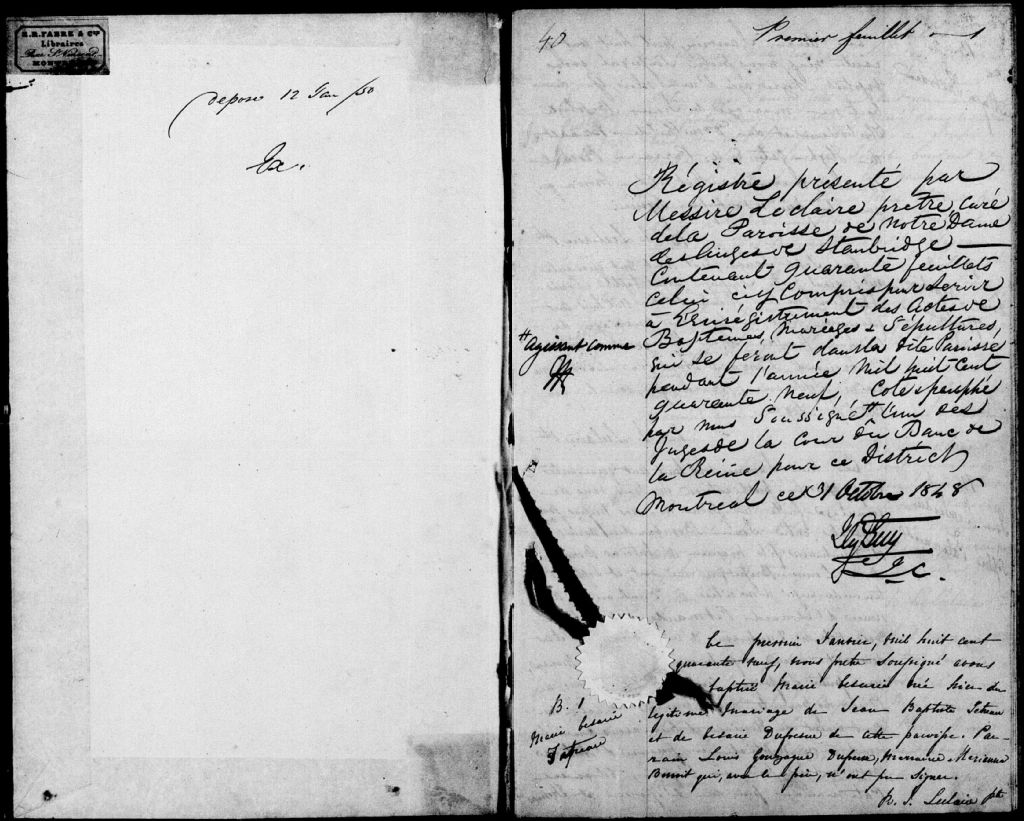 E.R. FABRE & Cie
Libraires
Rue St Vincent
MONTREAL
depose 12 Jan /50
40
Premier feuillet 1
Régistre présenté par
Messire Leclaire prêtre, curé
dela Paroisse de Notre Dame
des Anges de Stanbridge
Contenant quarante feuillets
celui cy Compris pour Servir
à Enrégistrement des Actes de
Baptemes, Mariages & Sépultures,
qui se feront dans la dite Paroisse
pendant l'année Mil huit Cent
quarante Neuf, Coté & paraphé
par nous Soussigné # l'un des
Juges de la Cour du Banc de
la Reine pour ce District
Montreal ce 31 Octobre 1848
# Agissant comme
J.C.
Le premier Janvier, mil huit cent
quarante neuf, nous prêtre Soussigné avons
baptisé Marie Cesarie née hier du
légitime mariage de Jean Baptiste
et de Cesarie Dufresne de cette paroisse. Par-
rain Louis Gonzague Dufresne, Marraine
Benoit qui, avec le père, n'ont pu signer.
Leclaire ptre
B. 1
Marie Cesarie